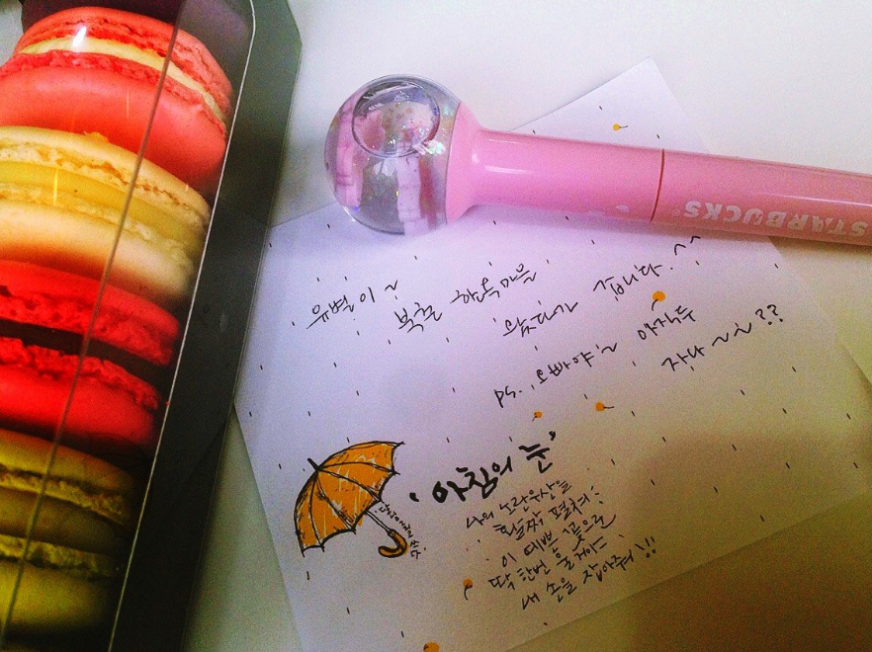 STARBUCKS
유별이~
복홀 한옥마을
왔다가 갑니다.^^
ps. 오빠야~ 아직두
자나~~??
'아침의 눈'
나의 노란우산을
활짝 펼쳐줘!
이 예쁜 곳으로
딱 한번 올게
내 손을 잡아줘!!